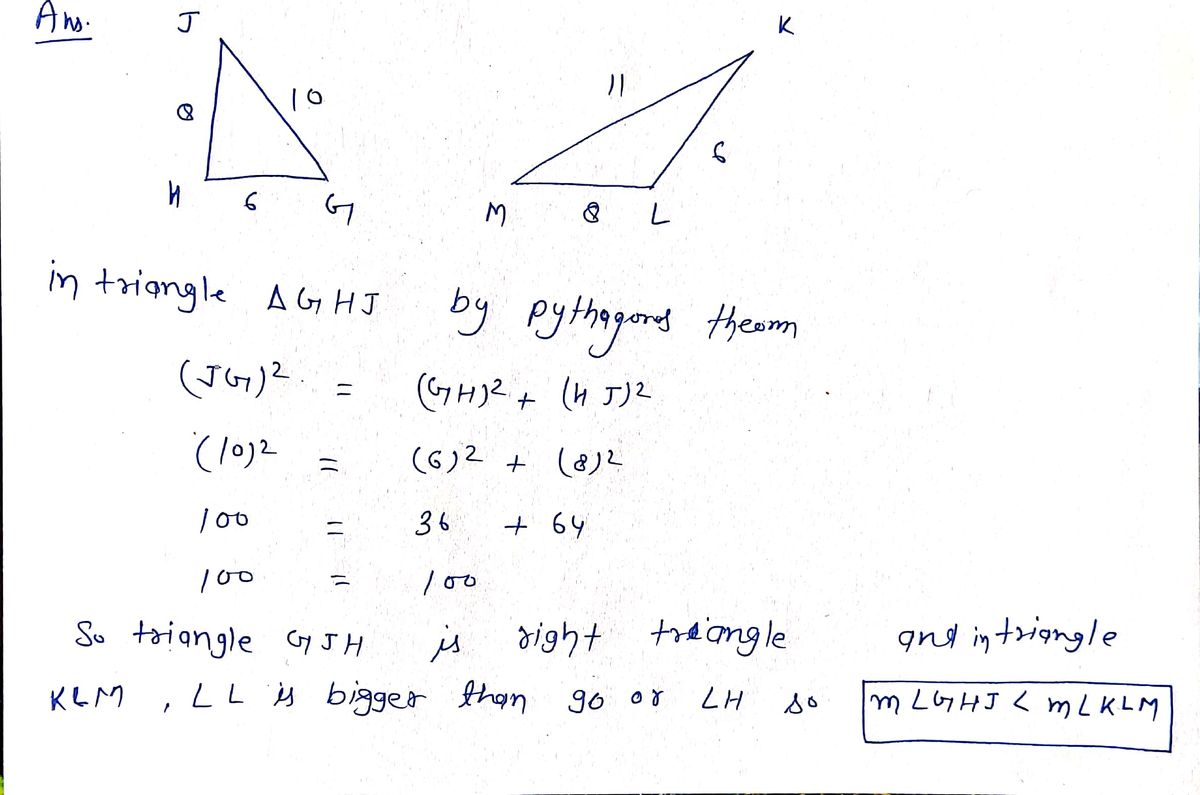 Ans.
J
K
8
10
11
6
H
6
G
M
8
L
in triangle ΔGHJ by pythagoras theorm
(JG)² = (GH)² + (HJ)²
(10)² = (6)² + (8)²
100 = 36 + 64
100 = 100
So triangle GJH is right triangle and in triangle
KLM, ∠L is bigger than 90 or ∠H so m∠GHJ < m∠KLM